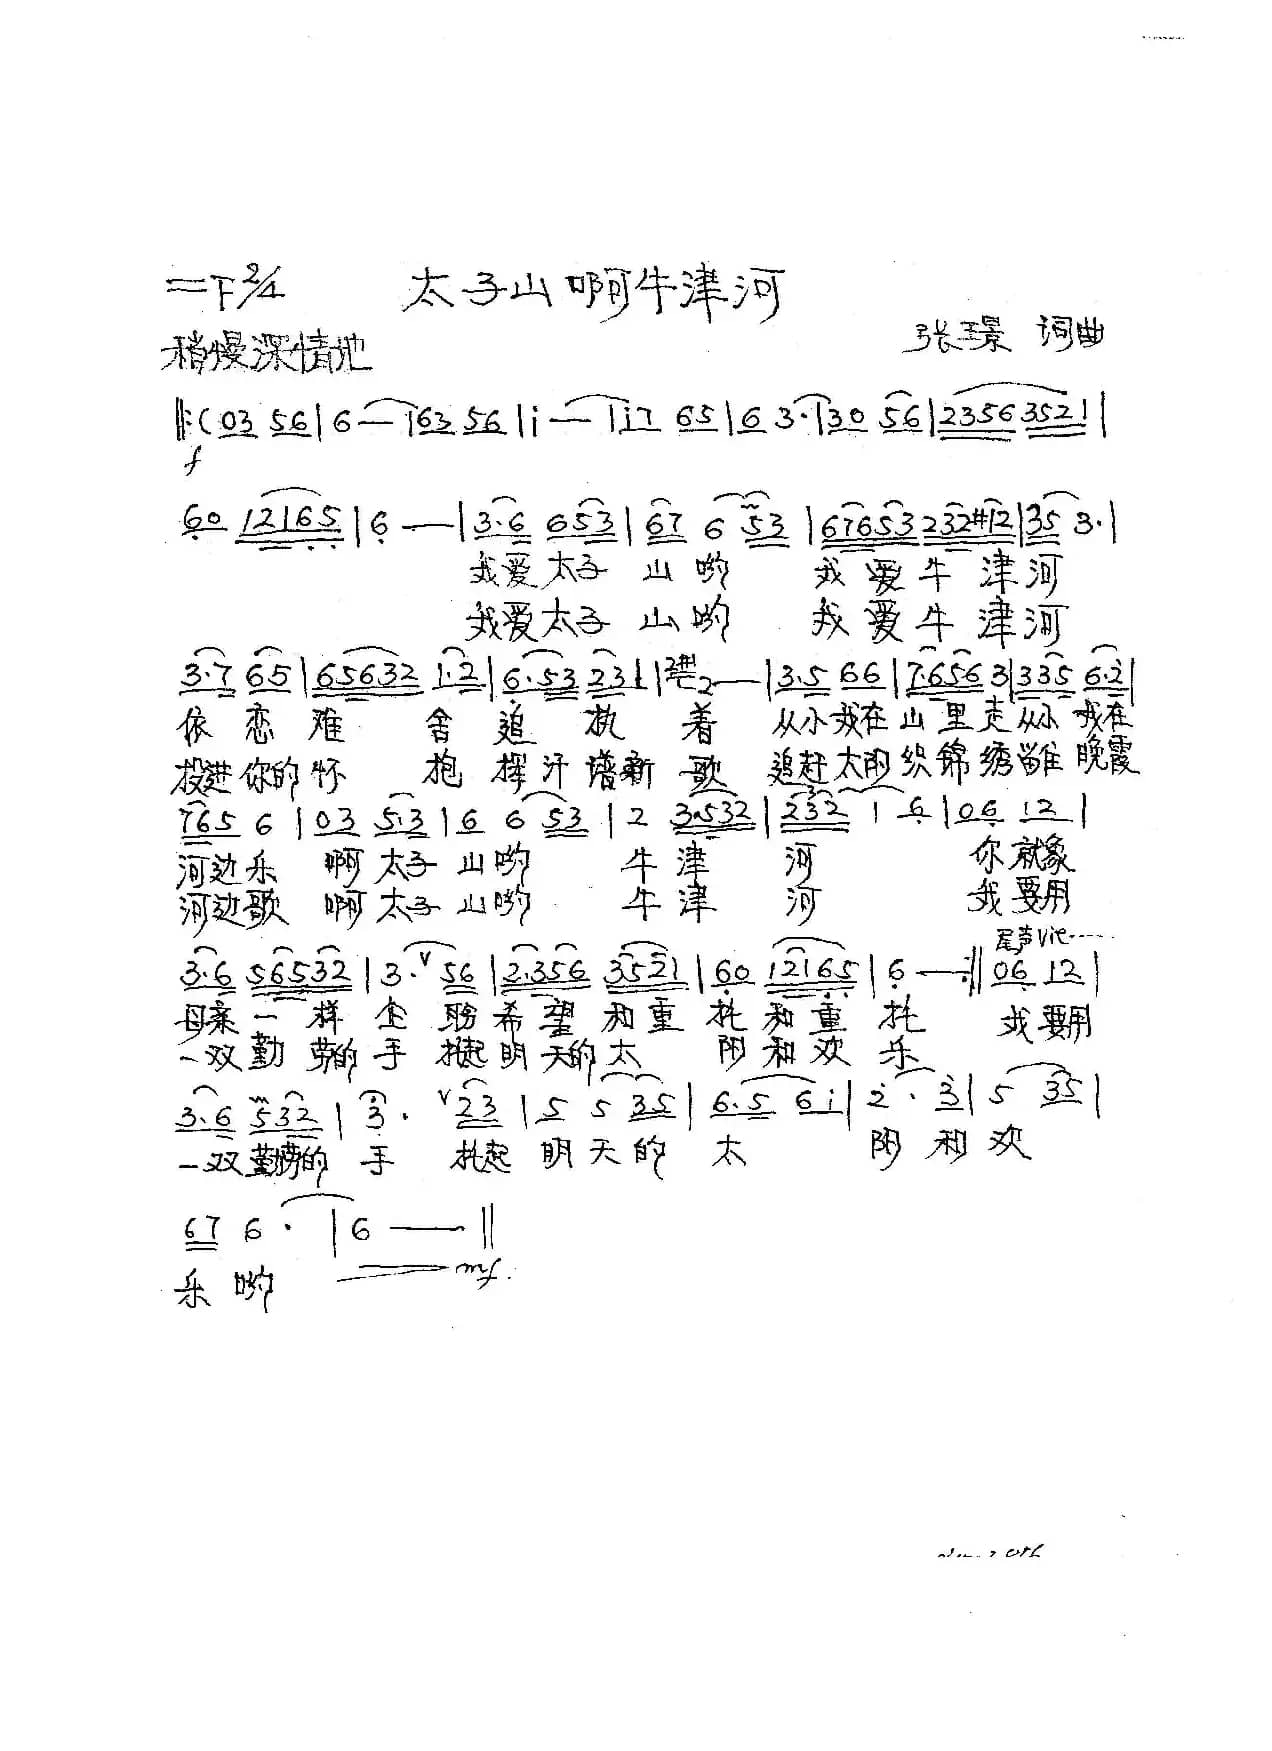 =F 2/4 太子山啊牛津河
稍慢深情地 张璟 词曲
‖:( 03 56 | 6 — | 63 56 | i — | i7 65 | 6 3· | 30 56 | 2356 3521 |
f
60 12165 | 6 — | 3·6 653 | 67 6 53 | 67653 232#12 | 35 3· |
我爱太子 山哟 我爱牛津河
我爱太子 山哟 我爱牛津河
3·7 65 | 65632 1·2 | 6·53 231 | 2 — | 3·5 66 | 7·656 3 | 335 6·2 |
依恋难 舍追执着 从小我在山里走从小我在
投进你的怀 抱挥汗谱新歌 追赶太阳织锦绣 晚霞
765 6 | 03 5·3 | 6 6 53 | 2 3·532 | 232 1 6 | 06 12 |
河边乐 啊太子山哟 牛津河 你就象
河边歌 啊太子山哟 牛津河 我要用
尾声
3·6 56532 | 3· V 56 | 2·356 3521 | 60 12165 | 6 — :‖ 06 12 |
母亲一样企盼希望和重托和重托 我要用
一双勤劳的手托起明天的太 阳和欢乐
3·6 532 | 3· V 23 | 5 5 35 | 6·5 6i | 2·3 | 5 35 |
一双勤劳的手 托起明天的太 阳和欢
67 6· | 6 — ‖
乐哟 mf